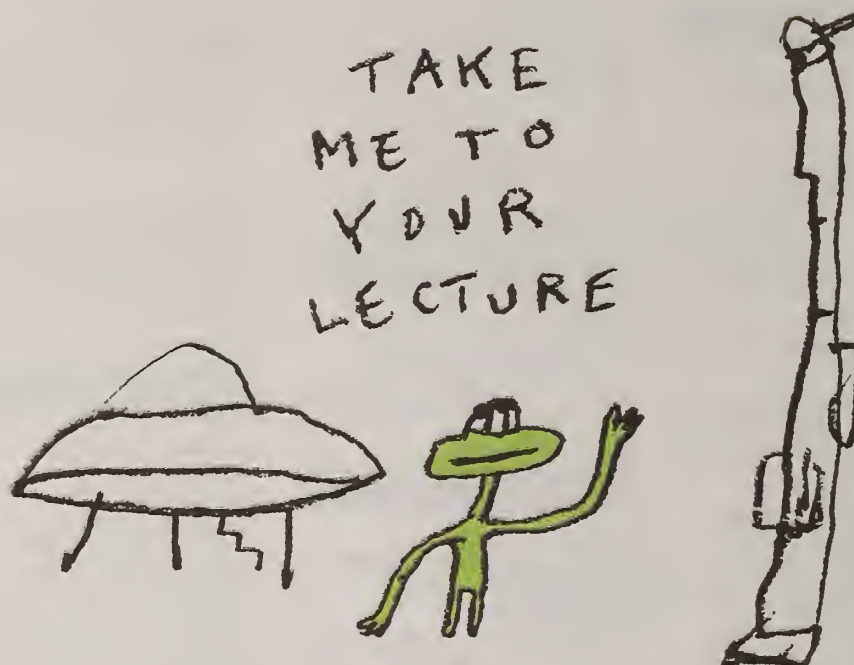 TAKE
ME TO
YOUR
LECTURE